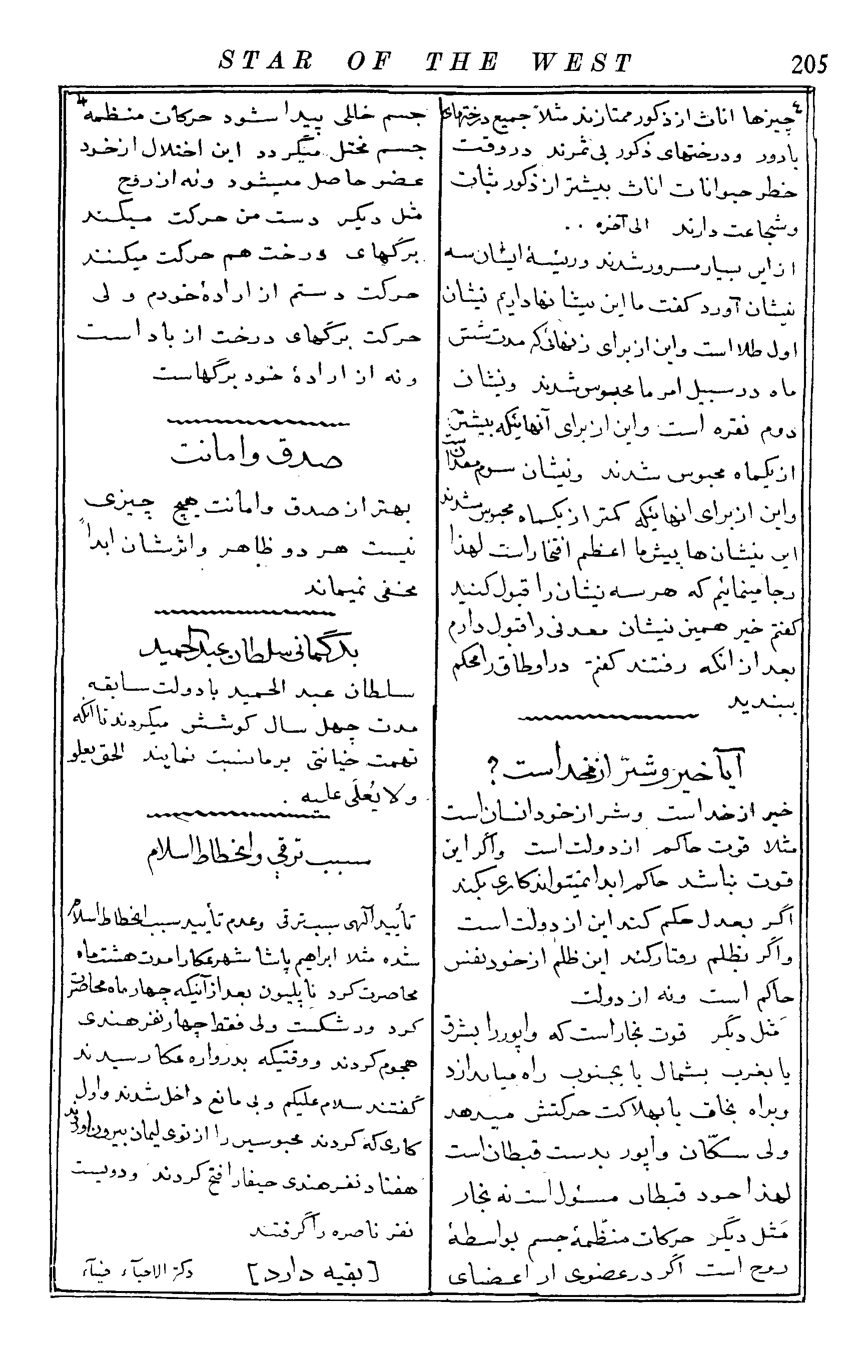 STAR OF THE WEST
205
چیزها اناث از ذکور ممتازند مثلاً جمیع درختهای
بادور و درختهای ذکور بی ثمرند در وقت
خطر حیوانات اناث بیشتر از ذکور ثبات
و شجاعت دارند الی آخره ..
از این بسیار مسرور شدند و رئیسهٔ ایشان سه
نیشان آورد گفت ما این نیشانها داریم نیشان
اول طلا است و این از برای زنهائیکه مدت شش
ماه در سبیل امر ما محبوس شدند و نیشان
دوم نقره است و این از برای آنهائیکه بیشتر
از یکماه محبوس شدند و نیشان سوم معدن است
و این از برای انهائیکه کمتر از یکماه محبوس شدند
این نیشان ها پیش ما اعظم افتخار است لهذا
رجا مینمائیم که هر سه نیشان را قبول کنید
گفتم خیر همین نیشان معدنی را قبول دارم
بعد از انکه رفتند گفتم در اوطاق را محکم
ببندید
آیا خیر و شرّ از خداست ؟
خیر از خداست و شر از خود انسان است
مثلا قوت حاکم از دولت است و اگر این
قوت نباشد حاکم ابدا نمیتواند کاری بکند
اگر بعدل حکم کند این از دولت است
و اگر بظلم رفتار کند این ظلم از خود نفس
حاکم است و نه از دولت
مثل دیگر قوت بخار است که واپور را بشرق
یا بغرب بشمال یا بجنوب راه میاندازد
و براه نجات یا بهلاکت حرکتش میدهد
ولی سکّان واپور بدست قبطان است
لهذا خود قبطان مسئول است نه بخار
مثل دیگر حرکات منظّمهٔ جسم بواسطهٔ
روح است اگر در عضوی از اعضای
جسم خللی پیدا شود حرکات منظمه
جسم مختل میگردد این اختلال از خود
عضو حاصل میشود و نه از روح
مثل دیگر دست من حرکت میکند
برگهای درخت هم حرکت میکنند
حرکت دستم از ارادهٔ خودم و لی
حرکت برگهای درخت از باد است
و نه از ارادهٔ خود برگهاست
صدق و امانت
بهتر از صدق و امانت هیچ چیزی
نیست هر دو ظاهر و اثرشان ابداً
مخفی نمیماند
بدگمانی سلطان عبد الحمید
سلطان عبد الحمید با دولت سابقه
مدت چهل سال کوشش میکردند تا آنکه
تهمت خیانتی بر ما نسبت نمایند الحق یعلو
و لا یُعلَی علیه .
سبب ترقی و انحطاط اسلام
تأیید آلهی سبب ترقی و عدم تأیید سبب انحطاط اسلام
شده مثلا ابراهیم پاشا شهر عکا را مدت هشت ماه
محاصرت کرد ناپلیون بعد از آنیکه چهار ماه محاصرت
کرد ورشکست ولی فقط چهار نفر هندی
هجوم کردند و وقتیکه بدروازه عکا رسیدند
گفتند سلام علیکم و بی مانع داخل شدند و اول
کاری که کردند محبوسین را از توی لیمان بیرون
هفتاد نفر هندی حیفا را فتح کردند و دویست
نفر ناصره را گرفتند
[بقیه دارد] دکتر